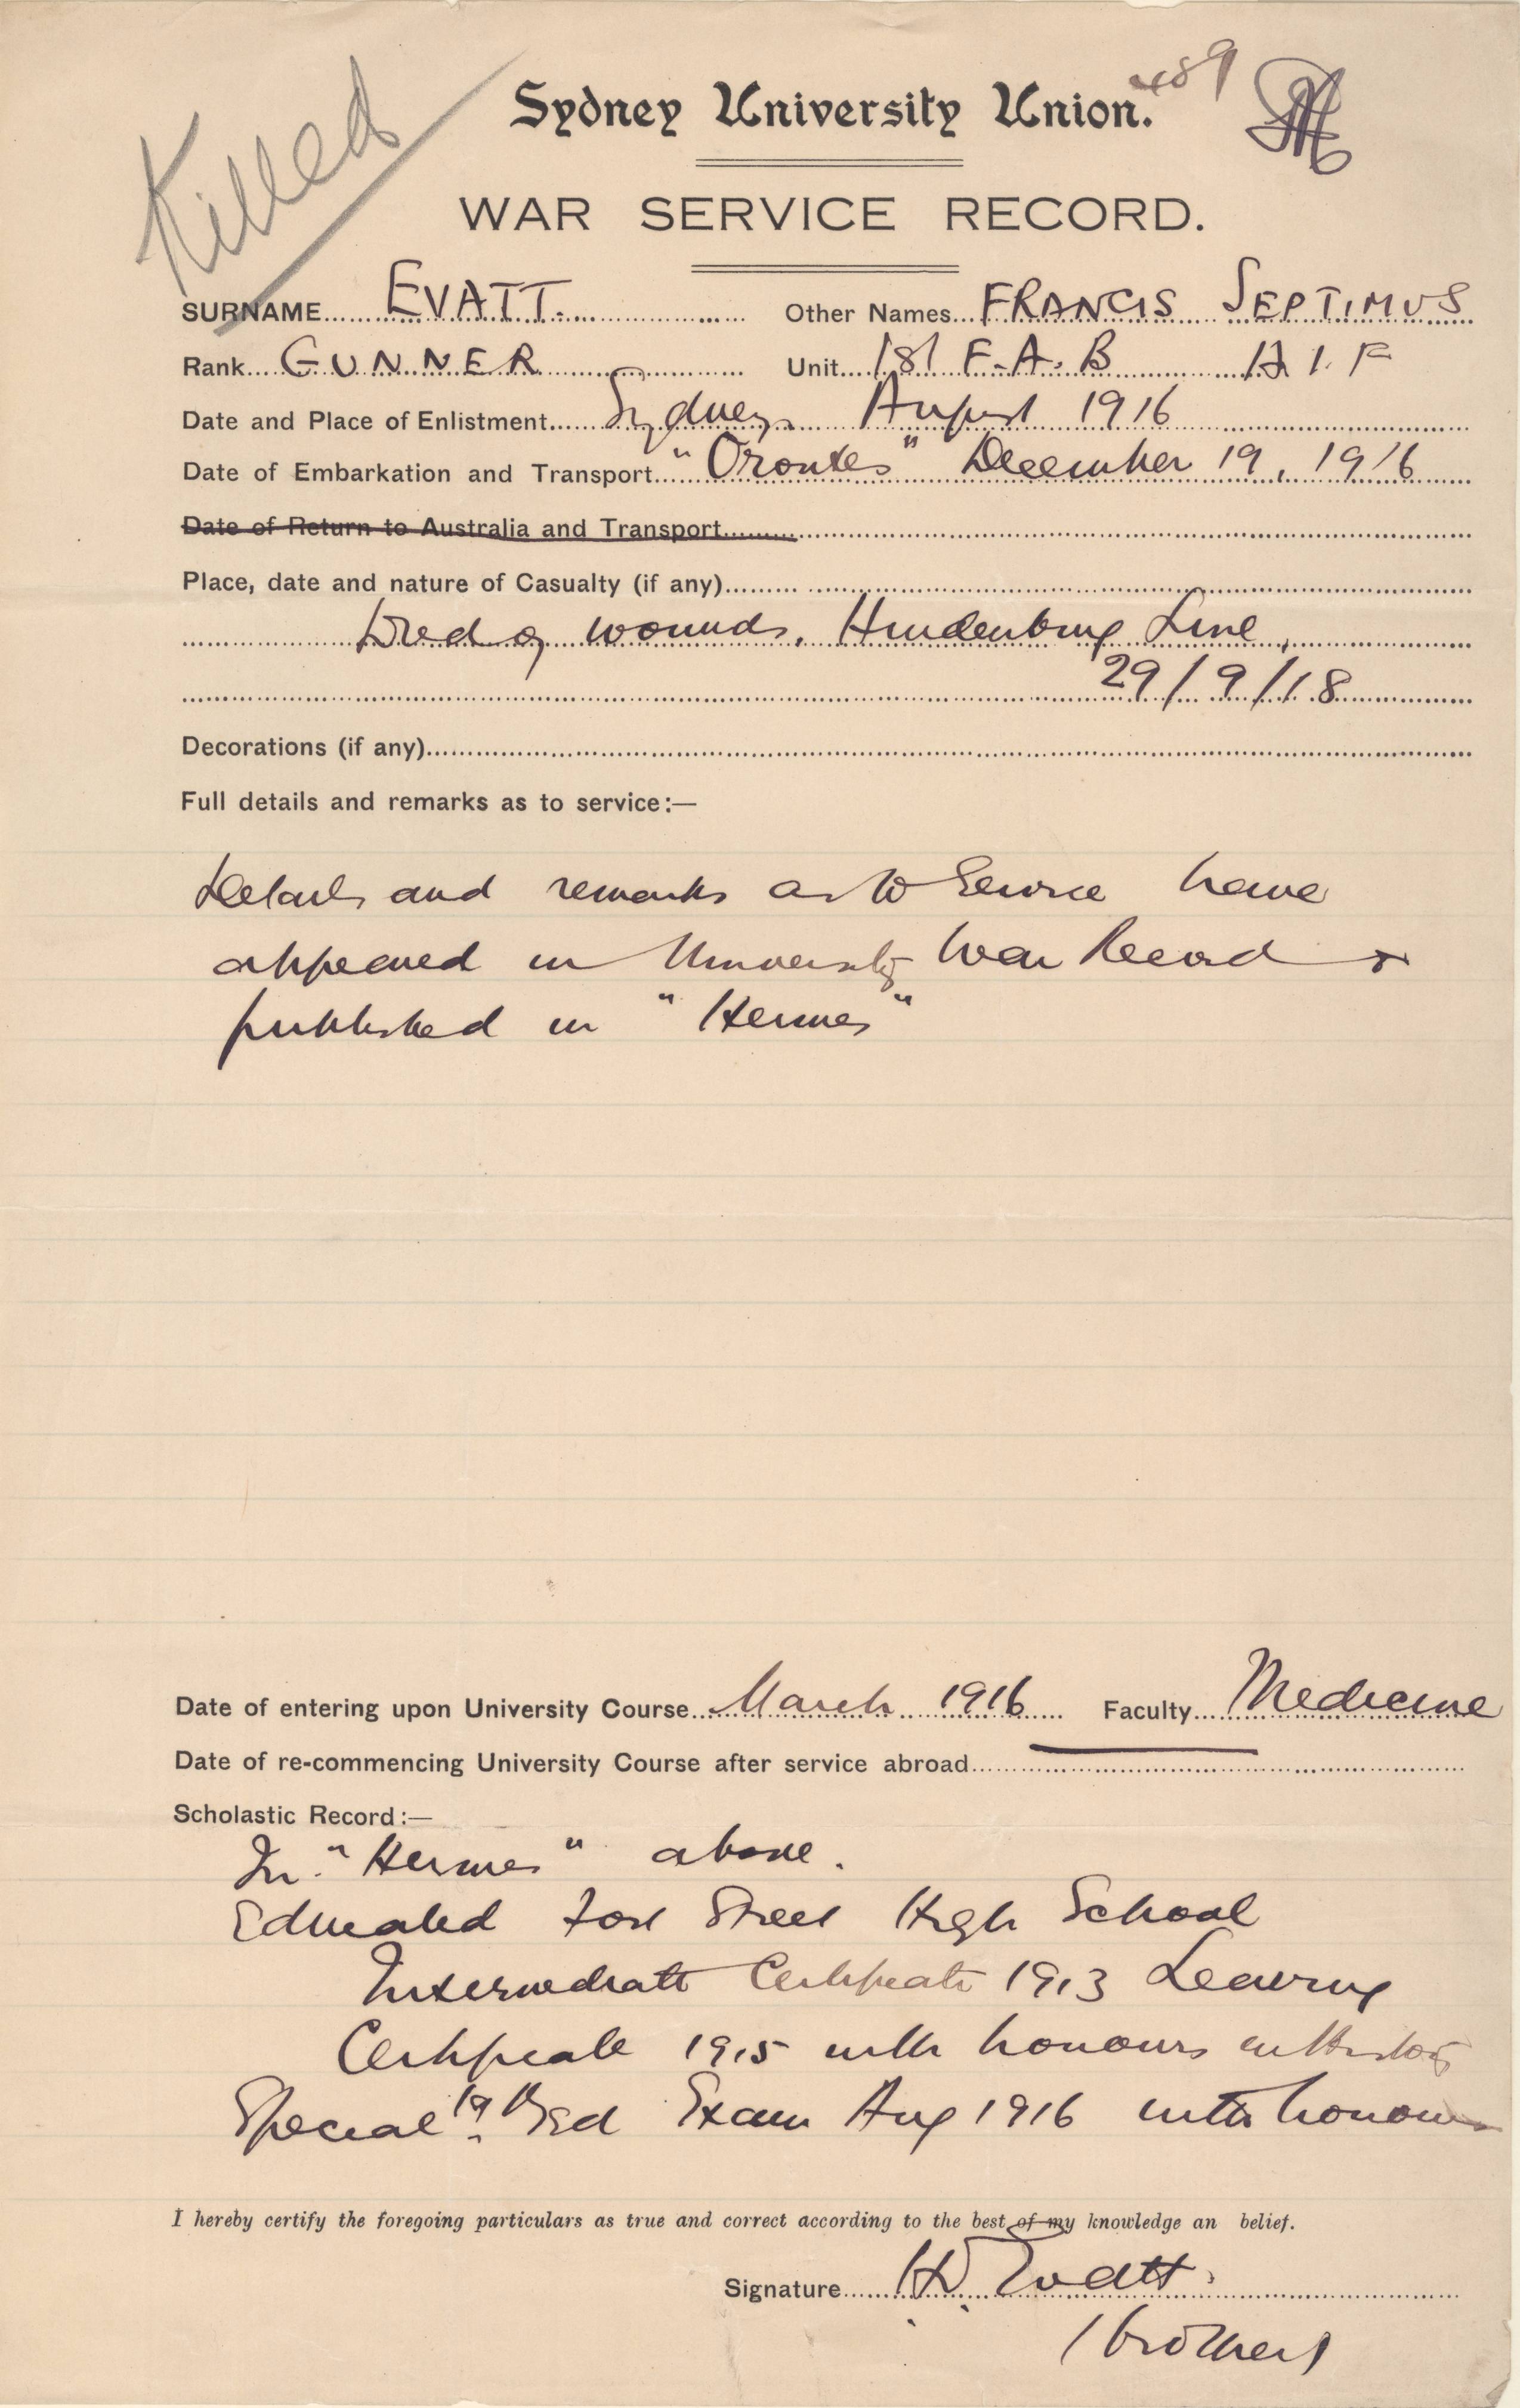 Killed
Sydney University Union. 489
WAR SERVICE RECORD.
SURNAME EVATT. Other Names FRANCIS SEPTIMUS
Rank GUNNER Unit 1st F.A.B A I. F
Date and Place of Enlistment Sydney August 1916
Date of Embarkation and Transport "Orontes" December 19, 1916
Date of Return to Australia and Transport
Place, date and nature of Casualty (if any)
Died of wounds. Hindenburg Line,
29/9/18
Decorations (if any)
Full details and remarks as to service:—
Details and remarks as to Service have
appeared in University War Record &
published in "Hermes"
Date of entering upon University Course March 1916 Faculty Medicine
Date of re-commencing University Course after service abroad
Scholastic Record:—
In "Hermes" above.
Educated Fort Street High School
Intermediate Certificate 1913 Leaving
Certificate 1915 with honours in History
Special Med Exam Aug 1916 with honours
I hereby certify the foregoing particulars as true and correct according to the best of my knowledge an belief.
Signature H.V. Evatt.
(brother)